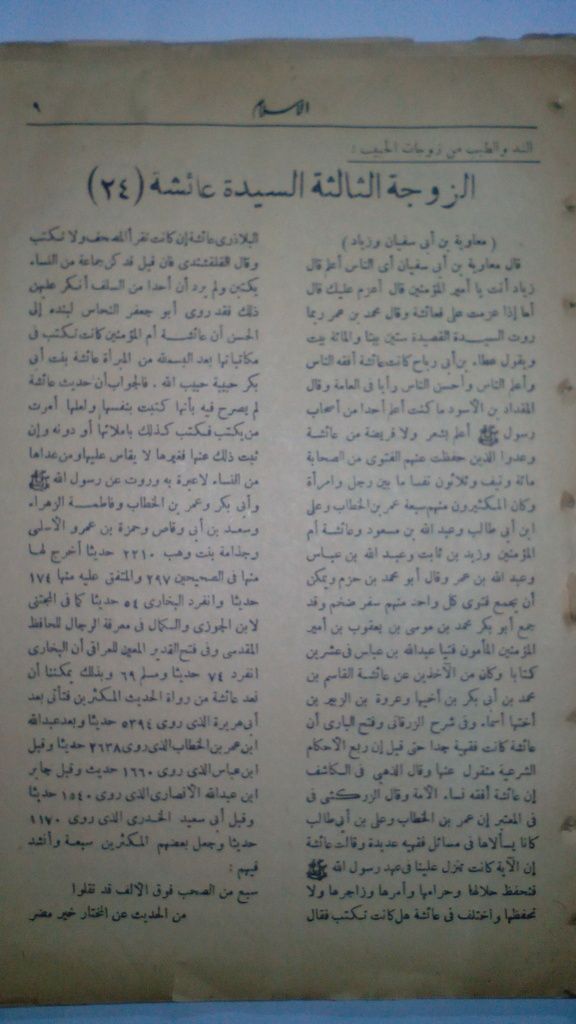 ٩
الاسلام
الند والطيب من زوجات الحبيب :
الزوجة الثالثة السيدة عائشة (٢٤)
( معاوية بن أبى سفيان وزياد )
قال معاوية بن أبى سفيان أى الناس أعلم قال
زياد أنت يا أمير المؤمنين قال أعزم عليك قال
أما إذا عزمت على فعائشة وقال محمد بن عمر ربما
روت السيدة القصيدة ستين بيتا والمائة بيت
ويقول عطاء بن أبى رباح كانت عائشة أفقه الناس
وأعلم الناس وأحسن الناس رأيا فى العامة وقال
المقداد بن الأسود ما كنت أعلم أحدا من أصحاب
رسول ﷺ أعلم بشعر ولا فريضة من عائشة
وعدوا الذين حفظت عنهم الفتوى من الصحابة
مائة ونيف وثلاثون نفسا ما بين رجل وامرأة
وكان المكثرون منهم سبعة عمر بن الخطاب وعلى
ابن أبى طالب وعبد الله بن مسعود وعائشة أم
المؤمنين وزيد بن ثابت وعبد الله بن عباس
وعبد الله بن عمر وقال أبو محمد بن حزم ويمكن
أن يجمع فتوى كل واحد منهم سفر ضخم وقد
جمع أبو بكر محمد بن موسى بن يعقوب بن أمير
المؤمنين المأمون فتيا عبدالله بن عباس فى عشرين
كتابا وكان من الآخذين عن عائشة القاسم بن
محمد بن أبى بكر بن أخيها وعروة بن الزبير بن
أختها أسماء. وفى شرح الزرقانى وفتح البارى أن
عائشة كانت فقيهة جدا حتى قيل إن ربع الأحكام
الشرعية منقول عنها وقال الذهبى فى الكاشف
إن عائشة أفقه نساء. الأمة وقال الزركشى فى
فى المعتبر إن عمر بن الخطاب وعلى بن أبى طالب
كانا يسألاها فى مسائل فقهيه عديدة وقالت عائشة
إن الآية كانت تنزل علينا فى عهد رسول الله ﷺ
فنحفظ حلالها وحرامها وأمرها وزاجرها ولا
نحفظها واختلف فى عائشة هل كانت تكتب فقال
البلاذرى عائشة إن كانت تقرأ المصحف ولا تكتب
وقال القلقشندى فان قيل قد كن جماعة من النساء
يكتبن ولم يرد أن أحدا من السلف أنكر عليهن
ذلك فقد روى أبو جعفر النحاس بسنده إلى
الحسن أن عائشة أم المؤمنين كانت تكتب فى
مكاتباتها بعد البسمله من المبرأة عائشة بنت أبى
بكر حبيبة حبيب الله . فالجواب أن حديث عائشة
لم يصرح فيه بأنها كتبت بنفسها ولعلها أمرت
من يكتب فكتب كذلك باملائها أو دونه وإن
ثبت ذلك عنها فغيرها لا يقاس عليها ومن عداها
من النساء لاعبرة به وروت عن رسول الله ﷺ
وأبى بكر وعمر بن الخطاب وفاطمة الزهراء
وسعد بن أبى وقاص وحمزة بن عمرو الأسلمى
وجدامة بنت وهب ٢٢١٠ حديثا أخرج لها
منها فى الصحيحين ٢٩٧ والمتفق عليه منها ١٧٤
حديثا وانفرد البخارى ٥٤ حديثا كما فى المجتنى
لابن الجوزى والكمال فى معرفة الرجال للحافظ
المقدسى وفى فتح القدير المعين للعراقى أن البخارى
انفرد ٧٤ حديثا ومسلم ٦٩ وبذلك يمكننا أن
نعد عائشة من رواة الحديث المكثرين فتأتى بعد
أبى هريرة الذى روى ٥٣٩٤ حديثا وبعد عبدالله
ابن عمر بن الخطاب الذى روى ٢٦٣٨ حديثا وقبل
ابن عباس الذى روى ١٦٦٠ حديث وقبل جابر
ابن عبدالله الأنصارى الذى روى ١٥٤٠ حديثا
وقبل أبى سعيد الخدرى الذى روى ١١٧٠
حديثا وجعل بعضهم المكثرين سبعة وأنشد
فيهم :
سبع من الصحب فوق الألف قد نقلوا
من الحديث عن المختار خير مضر